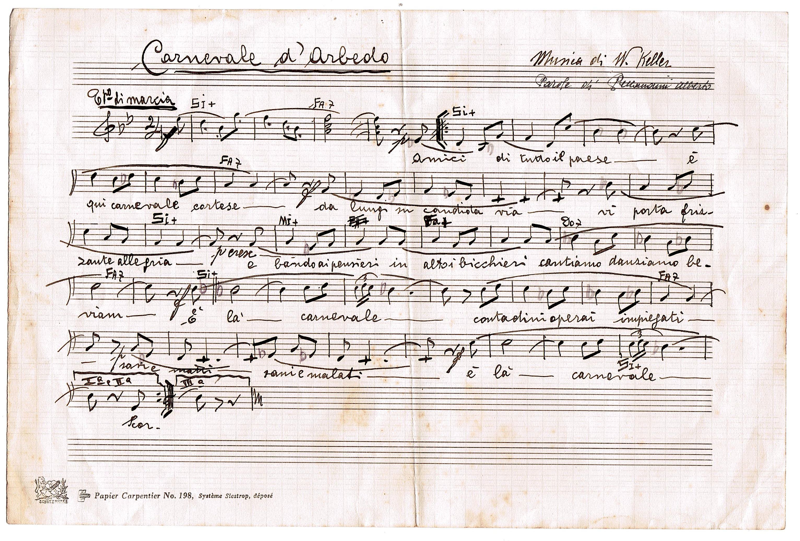 Carnevale d'Arbedo
Musica di W. Keller
Parole di Pellandini Alberto
T.po di marcia
Si+ FA7 Si+
amici di tutto il paese è
FA7
qui carnevale cortese da lungi su candida via vi porta friz-
Si+ Mi+ Fa+ Do7
zante allegria e bando ai pensieri in alto i bicchieri cantiamo danziamo be-
FA7 Si+ FA7
viam È là carnevale contadini operai impiegati
sani e matti sani e malati è là carnevale
Si+
I e IIa IIIa
Scor-
Papier Carpentier No. 198, Système Siestrop, déposé